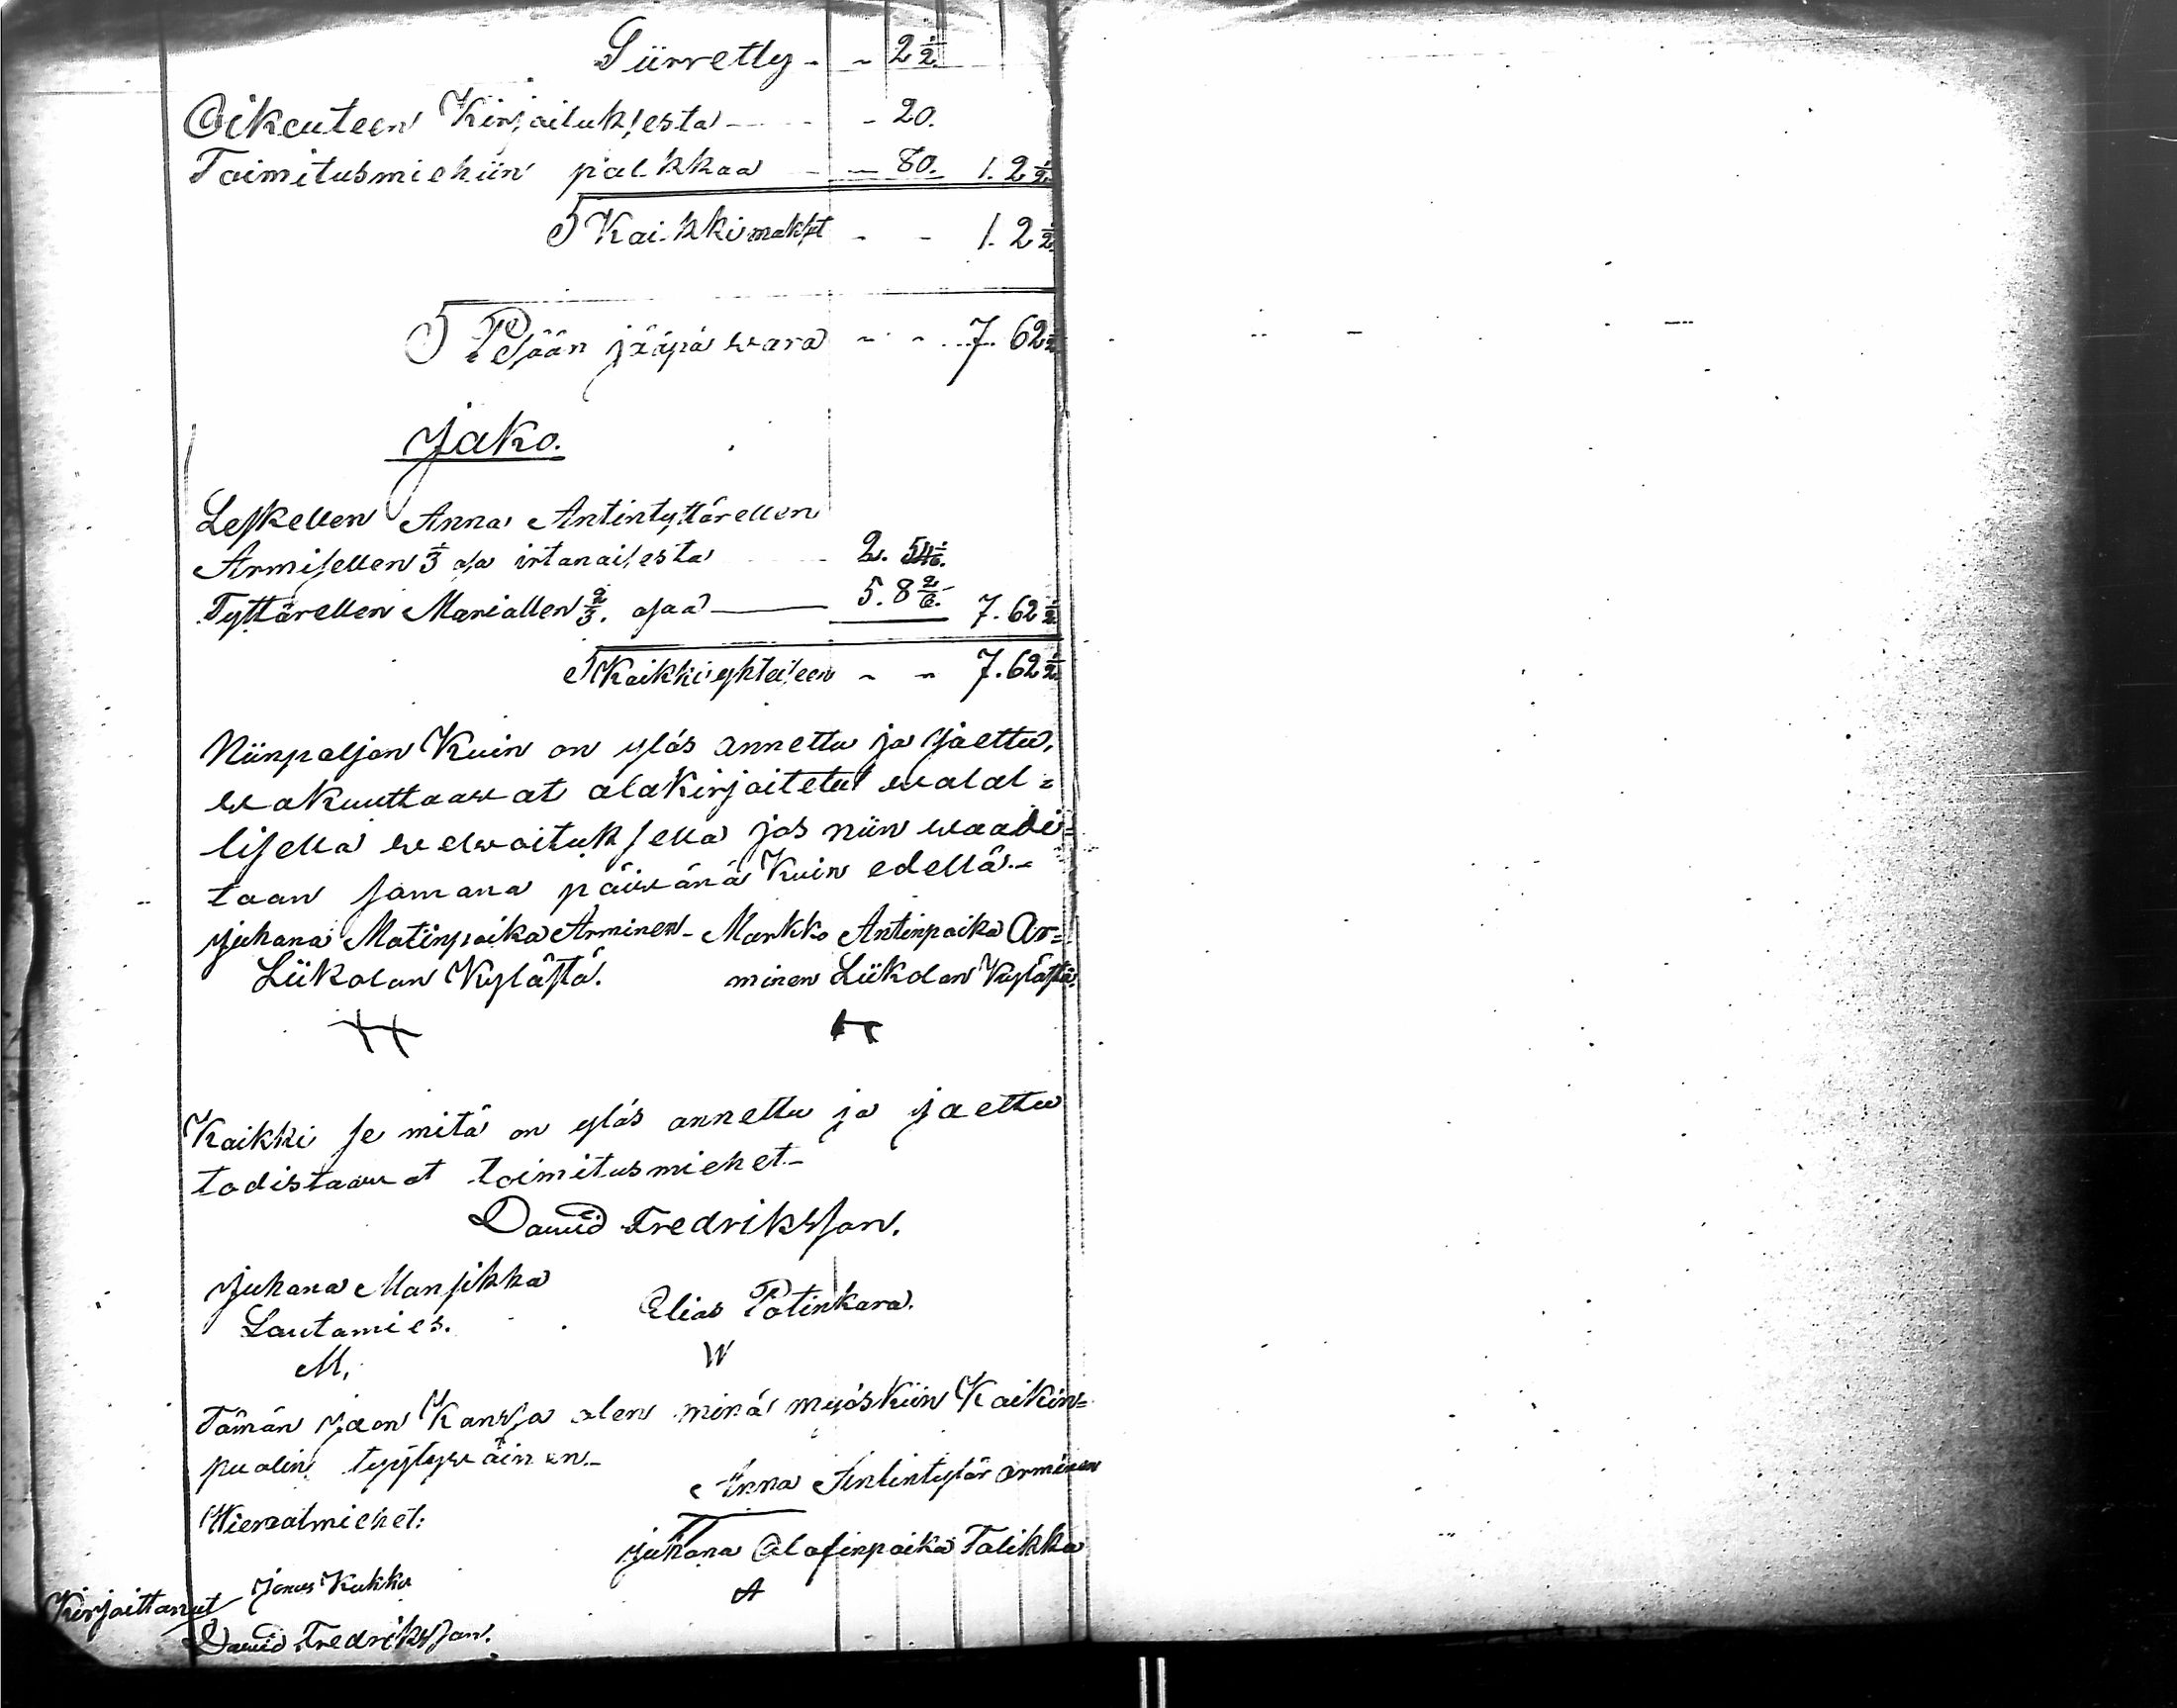 Siirretty - - 2 1/2.
Oikeuteen Kirjoituksesta - - 20.
Toimitusmiehiin palkkaa - - 80. 1. 2 1/2
S Kaikki maksut - - 1. 2 1/2
S Pesään jääpä wara - - 7. 62 1/2
Jako.
Leskellen Anna Antintyttärellen
Armisellen 1/3 osa irtanaisesta 2. 54 1/6.
Tyttärellen Mariallen 2/3. osaa 5. 8 2/6. 7. 62 1/2
S Kaikki yhteiseen - - 7. 62 1/2
Niinpaljon Kuin on ylös annettu ja jaettu,
wakuuttaawat alakirjoitetut walal=
lisella welwoituksella jos niin waadi=
taan samana päiwänä Kuin edellä.-
Juhana Matinpoika Arminen - Markko Antinpoika Ar=
Liikolan Kylästä. minen Liikolan Kylästä.
Kaikki se mitä on ylös annettu ja jaettu
todistaawat toimitusmiehet.-
Dawid Fredriksson.
Juhana Mansikka
Lautamies. Elias Potinkara.
M. W
Tämän jaon Kanssa olen minä myöskiin Kaikin=
puolin tyytywäinen.-
Anna Antintytär Arminen
Wieraatmiehet:
Juhana Olafinpoika Talikka
Jonas Kukko A
Kirjoittanut
Dawid Fredriksson.